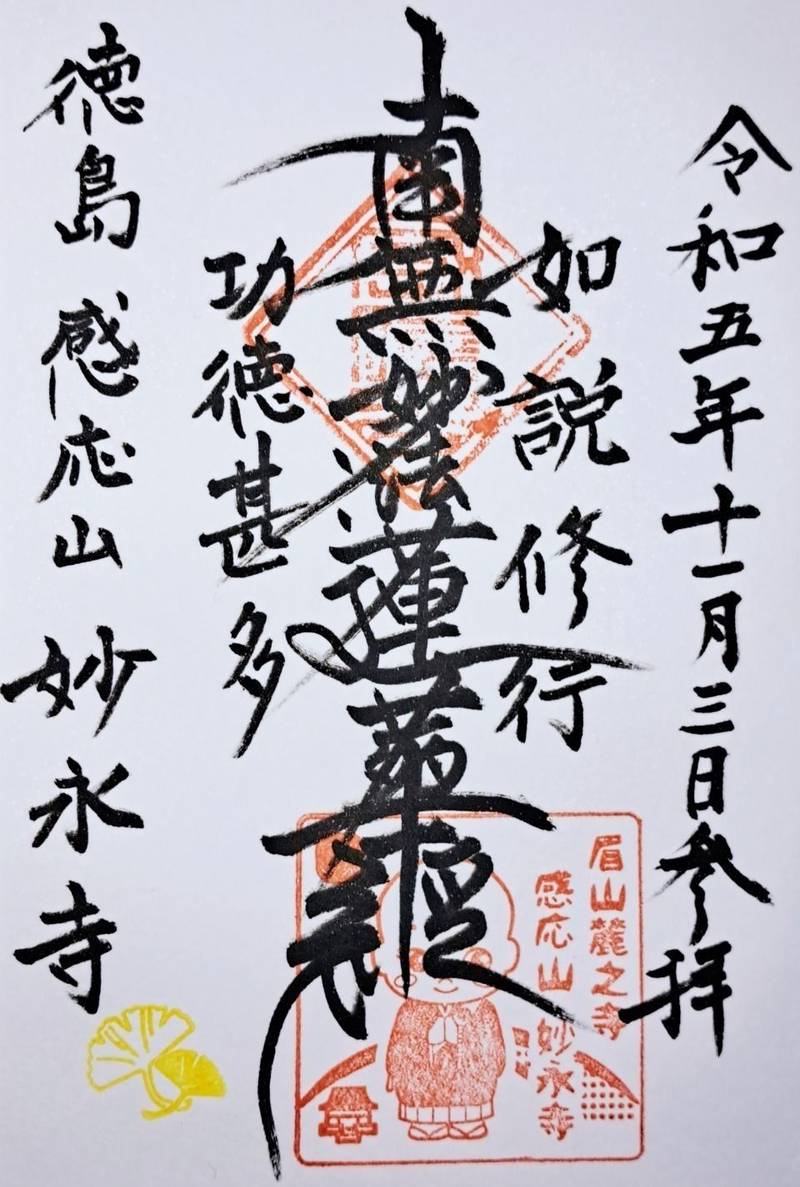 令和五年十一月三日参拝
如説修行
南無妙法蓮華經
功徳甚多
徳島 感応山 妙永寺
眉山麓之寺
感応山 妙永寺